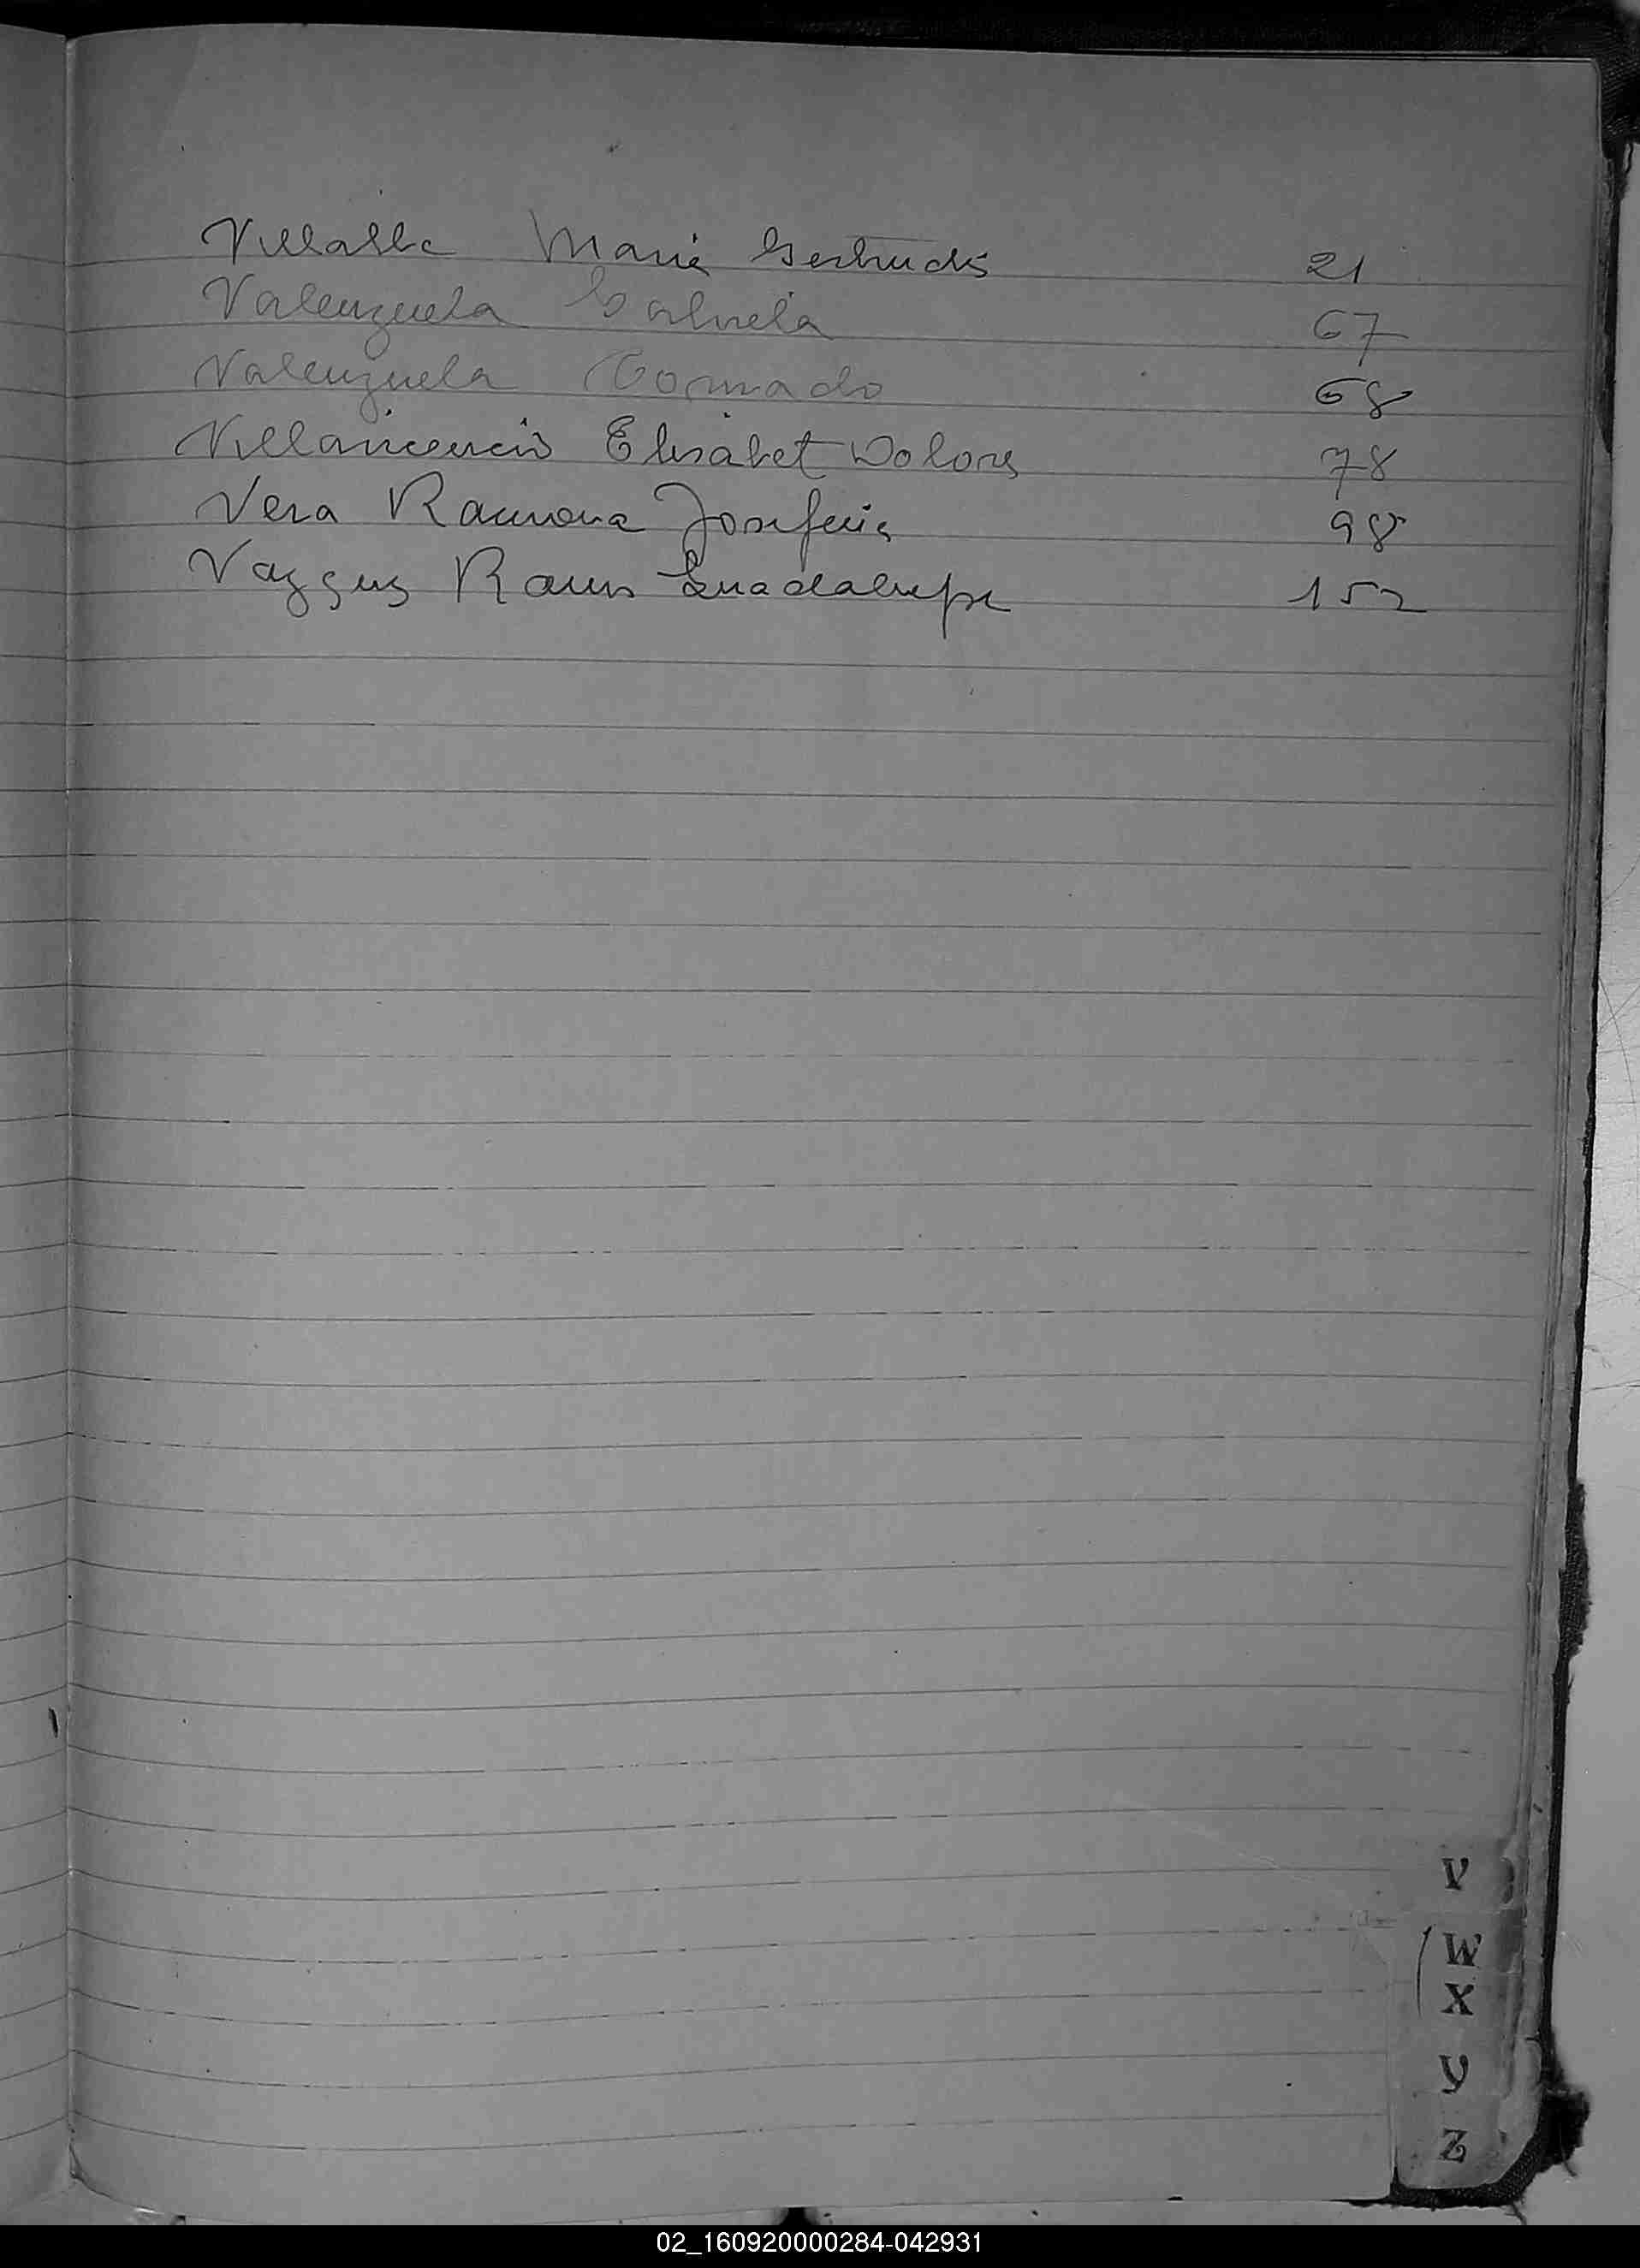 Villalba Maria Gertrudis 21
Valenzuela Gabriela 67
Valenzuela Conrado 68
Villavicencio Elisabet Dolores 78
Vera Ramona Josefina 98
Vazquez Guadalupe 152
V
W
X
Y
Z
02_160920000284-042931